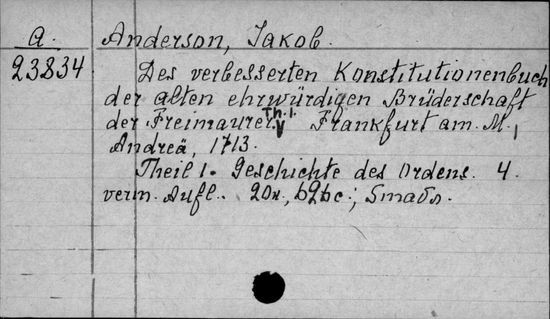 A. Anderson, Jakob.
23834 Des verbesserten Konstitutionenbuch
der alten ehrwürdigen Brüderschaft
der Freimaurer. Th. 1. Frankfurt am. M.,
Andreä, 1713.
Theil 1. Geschichte des Ordens. 4.
verm. Aufl.